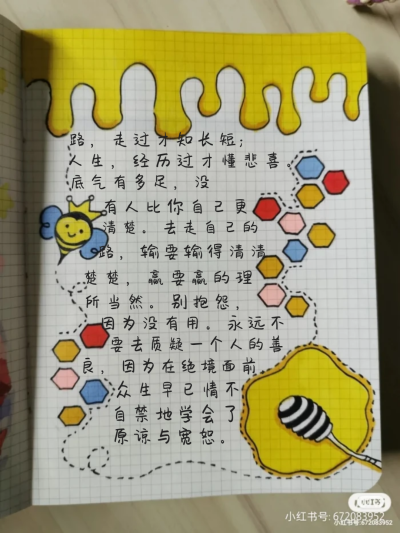 路，走过才知长短；
人生，经历过才懂悲喜。
底气有多足，没
有人比你自己更
清楚。去走自己的
路，输要输得清清
楚楚，赢要赢的理
所当然。别抱怨，
因为没有用。永远不
要去质疑一个人的善
良，因为在绝境面前
众生早已情不
自禁地学会了
原谅与宽恕。
小红书
小红书号: 672083952
小红书号:672083952